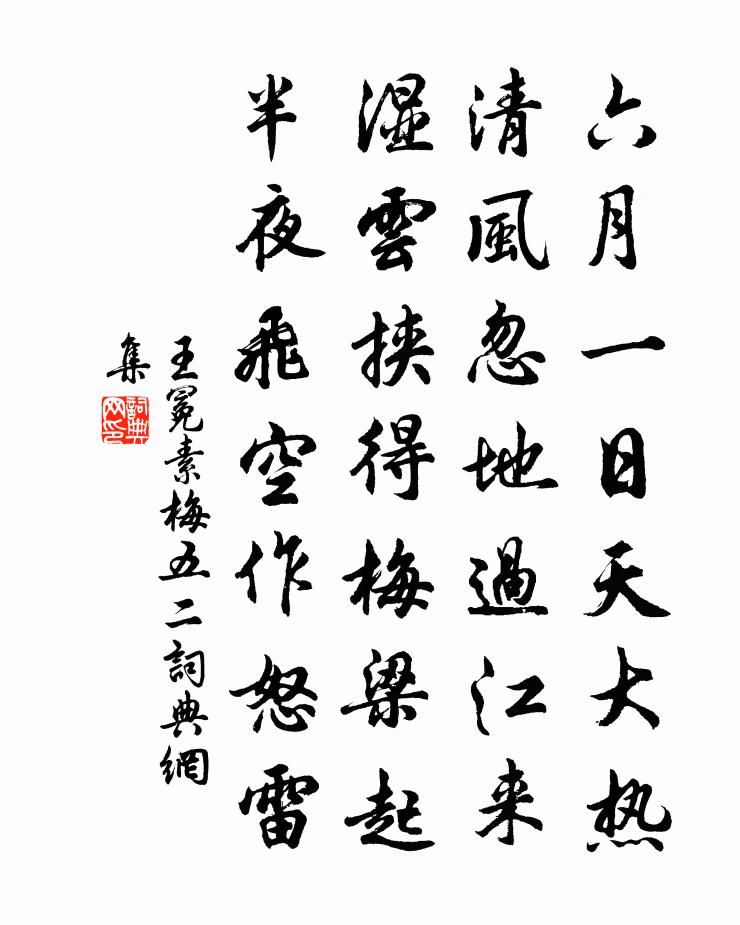 六月一日天大热
清風忽地過江来
濕雲挟得梅梁起
半夜飛空作怒雷
王冕素梅五二詞典網
集
詞典
网印